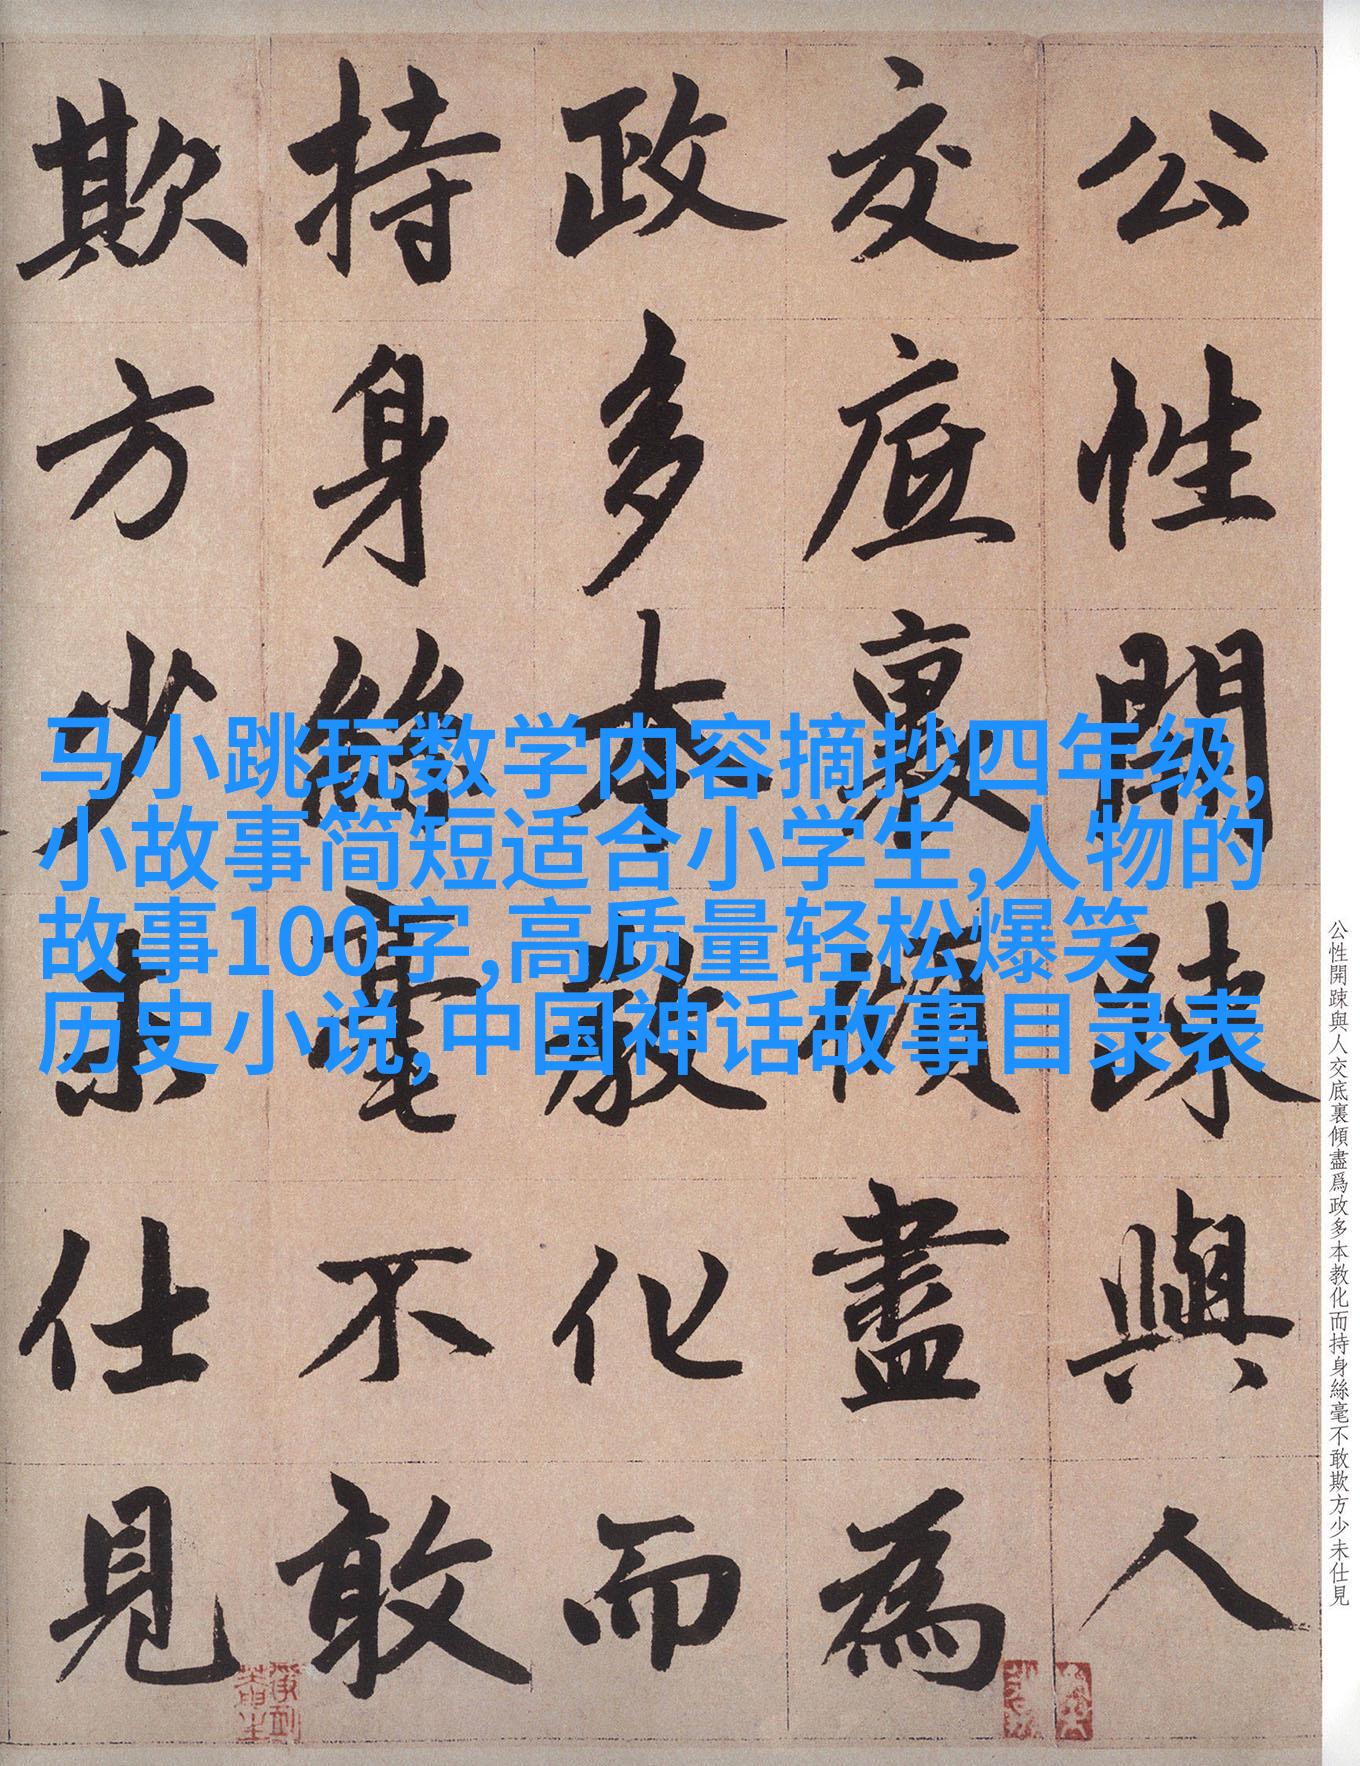 公性開踈與人
交底裏傾盡為
政多本教化而
持身絲毫不敢
欺方少未仕見
马小跳玩数学内容摘抄四年级,
小故事简短适合小学生,人物的
故事100字,高质量轻松爆笑
历史小说,中国神话故事目录表
公性開踈與人交底裏傾盡爲政多本教化而持身絲毫不敢欺方少未仕見